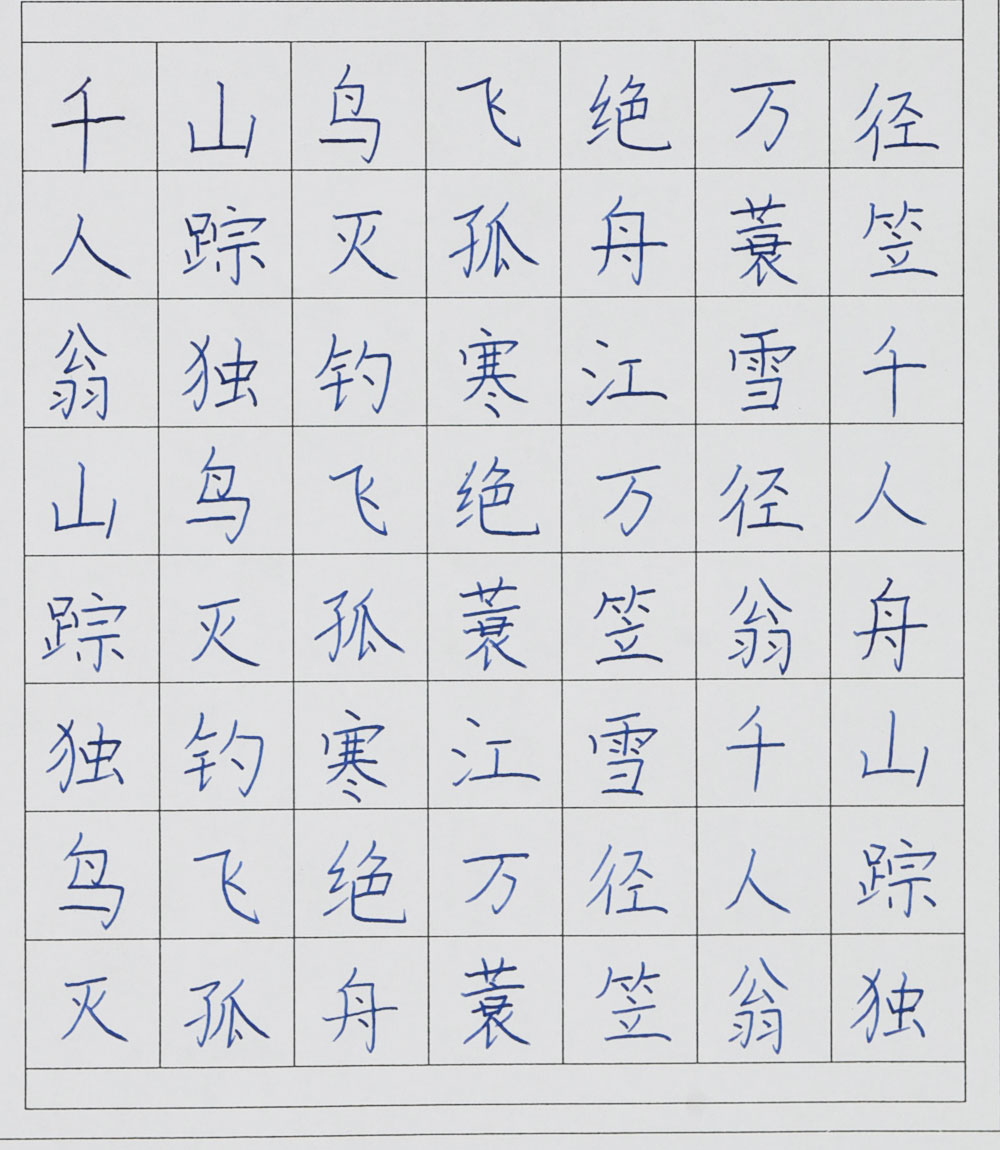 千山鸟飞绝万径
人踪灭孤舟蓑笠
翁独钓寒江雪千
山鸟飞绝万径人
踪灭孤蓑笠翁舟
独钓寒江雪千山
鸟飞绝万径人踪
灭孤舟蓑笠翁独